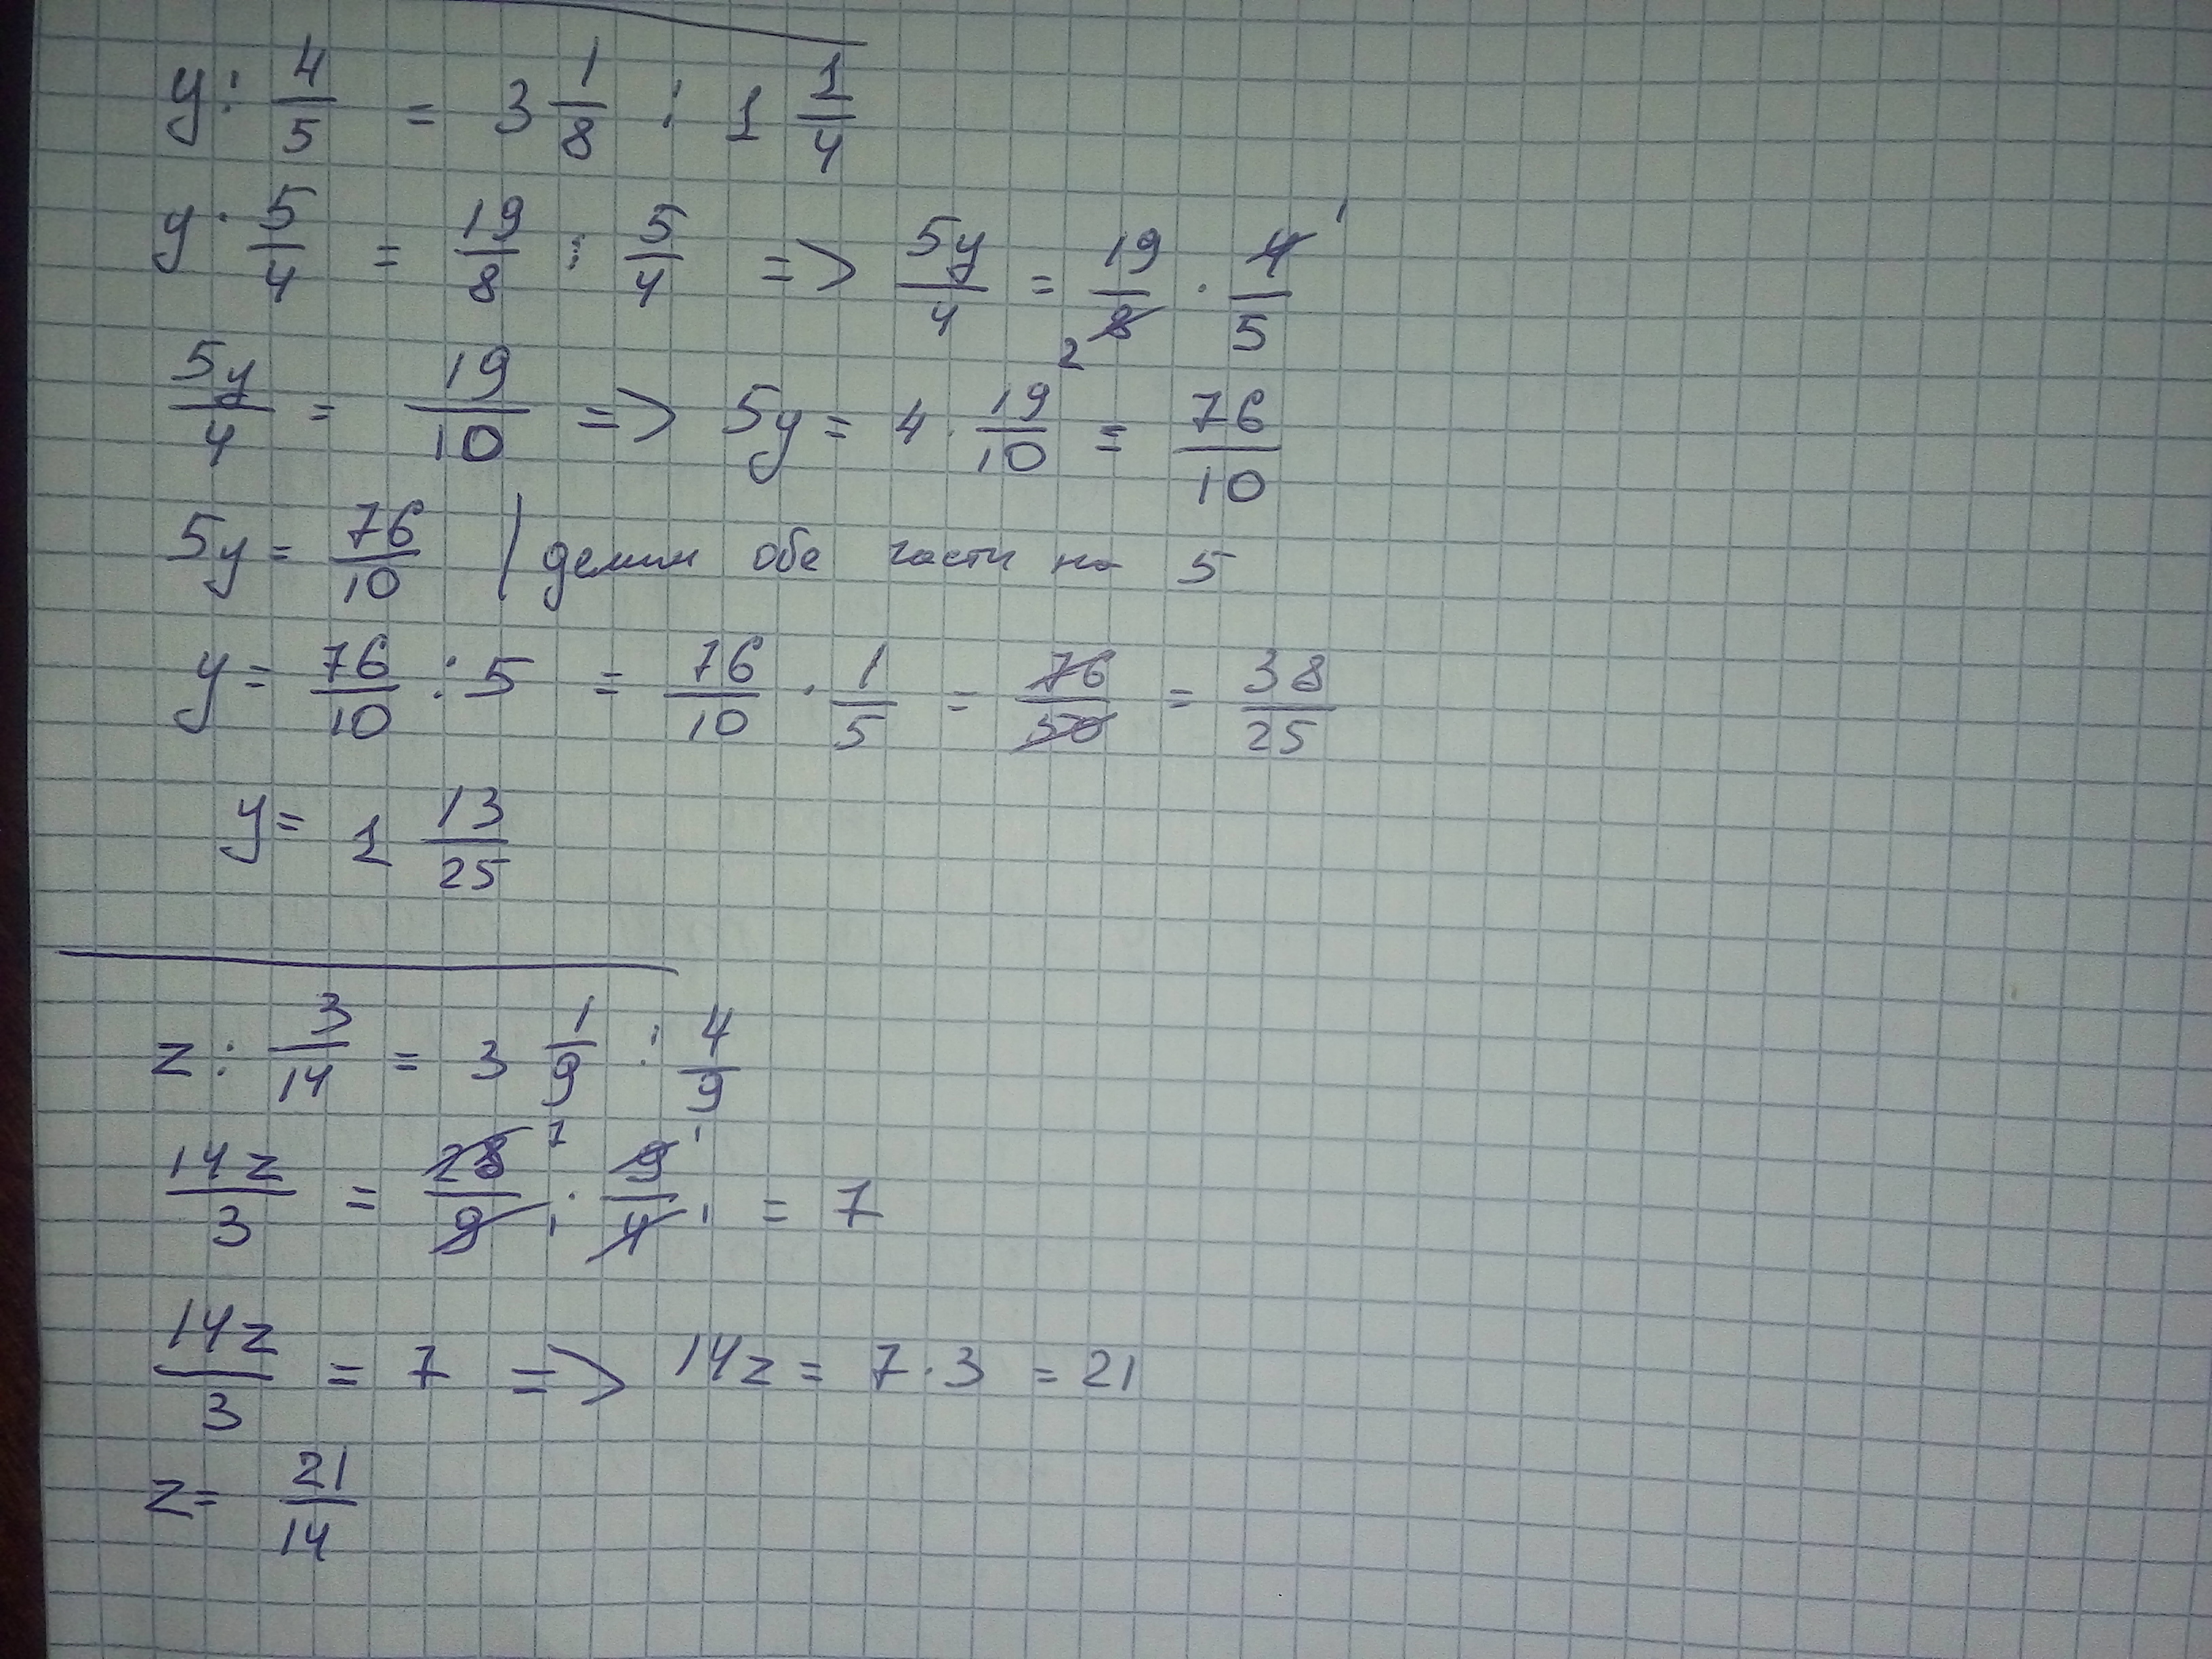 y : 4/5 = 3 1/8 : 1 1/4
y · 5/4 = 19/8 : 5/4 => 5y/4 = 19/8 2 · 4/5 1
5y/4 = 19/10 => 5y = 4 · 19/10 = 76/10
5y = 76/10 | делим обе части на 5
y = 76/10 : 5 = 76/10 · 1/5 = 76/50 = 38/25
y = 1 13/25
z : 3/14 = 3 1/9 : 4/9
14z/3 = 28/9 7 1 : 9/4 1 1 = 7
14z/3 = 7 => 14z = 7 · 3 = 21
z = 21/14